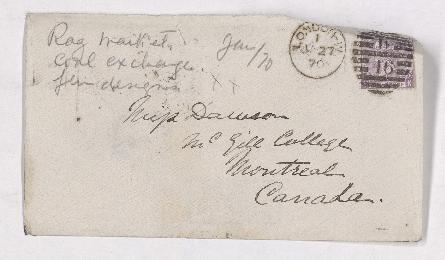 Rag market. Jan/70
Coal exchange.
few designs X X
LONDON W
1
JA 27
70
W
16
Miss Dawson
Mc Gill College
Montreal
Canada.